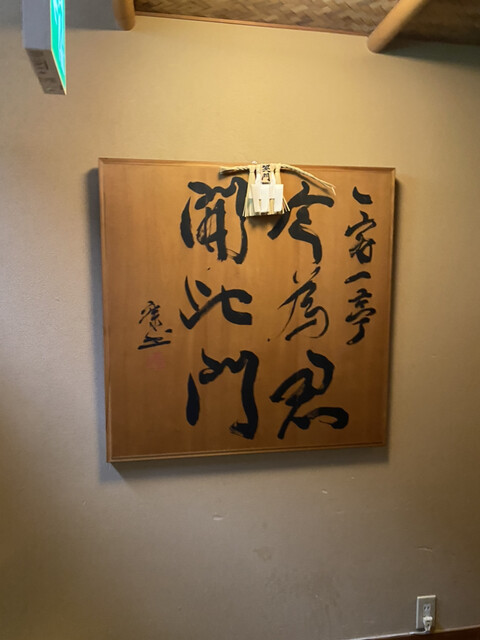 一客一亭
今為君
開此門
笑門